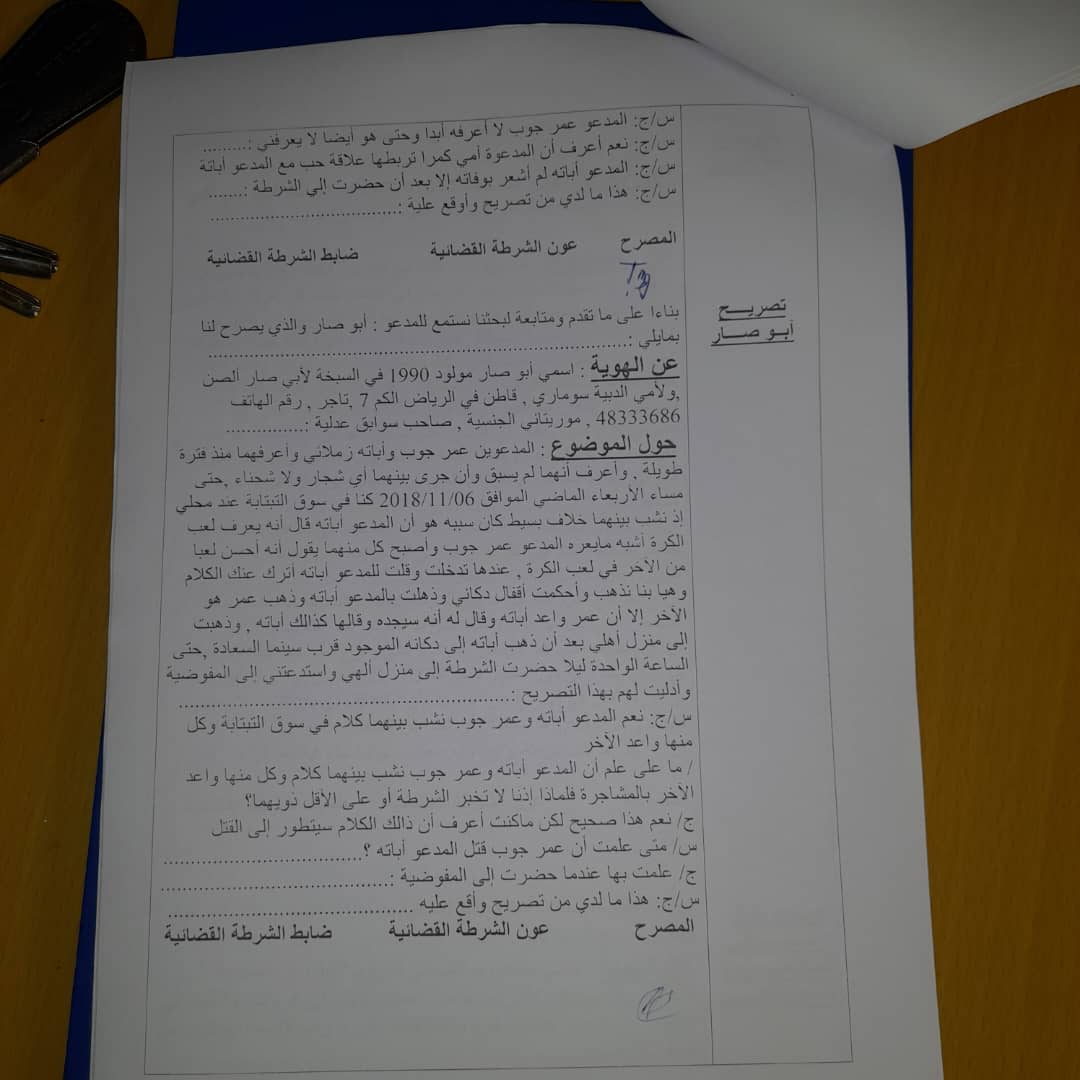 س/ج: المدعو عمر جوب لا أعرفه أبدا وحتى هو أيضا لا يعرفني :..........
س/ج: نعم أعرف أن المدعوة أمي كمرا تربطها علاقة حب مع المدعو أباتة
س/ج: المدعو أباته لم أشعر بوفاته إلا بعد أن حضرت إلي الشرطة :.......
س/ج: هذا ما لدي من تصريح وأوقع علية :....................................
المصرح عون الشرطة القضائية ضابط الشرطة القضائية
تصريـــح
أبـو صـــار
بناءا على ما تقدم ومتابعة لبحثنا نستمع للمدعو : أبو صار والذي يصرح لنا
بمايلي :................................................................................
عن الهوية : اسمي أبو صار مولود 1990 في السبخة لأبي صار ألصن
,ولأمي الدبية سوماري , قاطن في الرياض الكم 7 ,تاجر , رقم الهاتف
48333686 , موريتاني الجنسية , صاحب سوابق عدلية :...............
حول الموضوع : المدعوين عمر جوب وأباته زملائي وأعرفهما منذ فترة
طويلة , وأعرف أنهما لم يسبق وأن جرى بينهما أي شجار ولا شحناء ,حتى
مساء الأربعاء الماضي الموافق 2018/11/06 كنا في سوق التبتابة عند محلي
إذ نشب بينهما خلاف بسيط كان سببه هو أن المدعو أباته قال أنه يعرف لعب
الكرة أشبه مايعره المدعو عمر جوب وأصبح كل منهما يقول أنه أحسن لعبا
من الآخر في لعب الكرة , عندها تدخلت وقلت للمدعو أباته أترك عنك الكلام
وهيا بنا نذهب وأحكمت أقفال دكاني وذهلت بالمدعو أباته وذهب عمر هو
الآخر إلا أن عمر واعد أباته وقال له أنه سيجده وقالها كذالك أباته , وذهبت
إلى منزل أهلي بعد أن ذهب أباته إلى دكانه الموجود قرب سينما السعادة ,حتى
الساعة الواحدة ليلا حضرت الشرطة إلى منزل ألهي واستدعتني إلى المفوضية
وأدليت لهم بهذا التصريح :..............................................................
س/ج: نعم المدعو أباته وعمر جوب نشب بينهما كلام في سوق التبتابة وكل
منها واعد الآخر
/ ما على علم أن المدعو أباته وعمر جوب نشب بينهما كلام وكل منها واعد
الآخر بالمشاجرة فلماذا إذنا لا تخبر الشرطة أو على الأقل ذويهما؟
ج/ نعم هذا صحيح لكن ماكنت أعرف أن ذالك الكلام سيتطور إلى القتل
س/ متى علمت أن عمر جوب قتل المدعو أباته ؟...................................
ج/ علمت بها عندما حضرت إلى المفوضية :.........................................
س/ج: هذا ما لدي من تصريح وأقع عليه ...........................................
المصرح عون الشرطة القضائية ضابط الشرطة القضائية